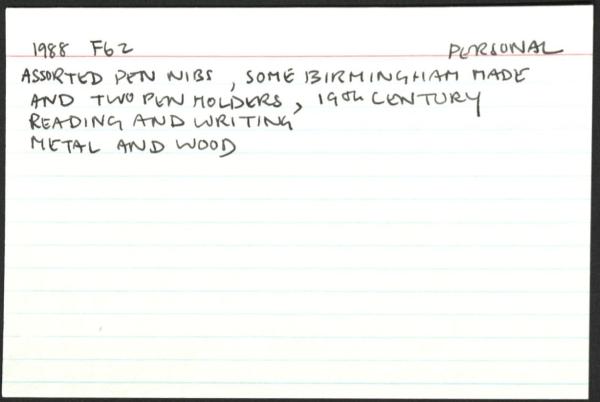 1988 F62 PERSONAL
ASSORTED PEN NIBS, SOME BIRMINGHAM MADE
AND TWO PEN HOLDERS, 19th CENTURY
READING AND WRITING
METAL AND WOOD